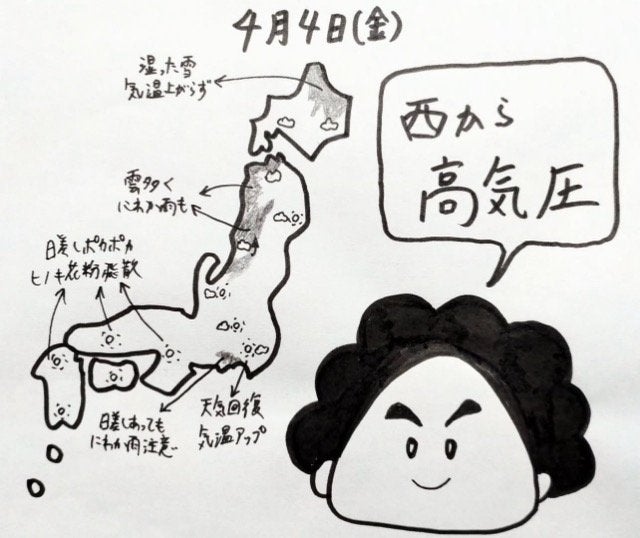 4月4日(金)
湿った雪
気温上がらず
西から
高気圧
雲多く
にわか雨も
日差しポカポカ
ヒノキ花粉飛散
日差しあっても
にわか雨注意
天気回復
気温アップ